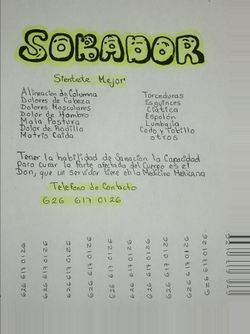 SOBADOR
Sientete Mejor
Alineacion de Columna
Dolores de Cabeza
Dolores Musculares
Dolor de Hombro
Mala Postura
Dolor de Rodilla
Matris Caida
Torceduras
Esguinces
Ciatica
Espolón
Lumbalia
Codo y Tobillo
otros
Tener la habilidad de Sanación la Capacidad
para curar la Parte afectada del Cuerpo es el
Don, que un servidor tiene en la Medicina Mexicana
Telefono de Contacto
626 617 0126
626 617 0126
626 617 0126
626 617 0126
626 617 0126
626 617 0126
626 617 0126
626 617 0126
626 617 0126